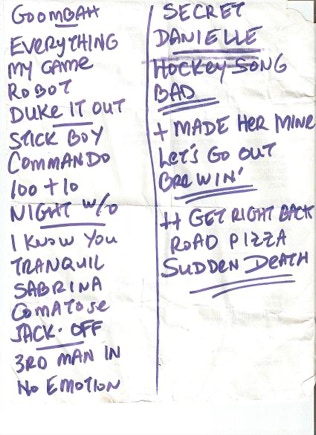 GOOMBAH
EVERYTHING
MY GAME
ROBOT
DUKE IT OUT
STICK BOY
COMMANDO
100 + 10
NIGHT W/O
I KNOW YOU
TRANQUIL
SABRINA
COMATOSE
JACK-OFF
3RD MAN IN
NO EMOTION
SECRET
DANIELLE
HOCKEY SONG
BAD
+ MADE HER MINE
LET'S GO OUT
BREWIN'
++ GET RIGHT BACK
ROAD PIZZA
SUDDEN DEATH